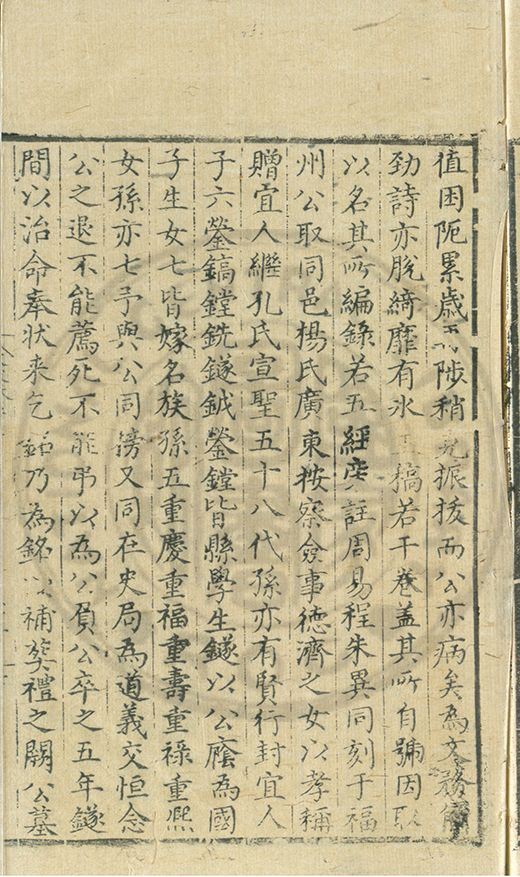 值困阨累歲而陟稍見振拔而公亦病矣為文務簡
勁詩亦脫綺靡有氷玉稿若干卷蓋其所自號因取
以名其所編錄若五經旁註周易程朱異同刻于福
州公取同邑楊氏廣東按察僉事德濟之女以孝稱
贈宜人繼孔氏宣聖五十八代孫亦有賢行封宜人
子六鎣鎬鏜銑鐩鉞鎣鏜皆縣學生鐩以公廕為國
子生女七皆嫁名族孫五重慶重福重壽重祿重熙
女孫亦七予與公同榜又同在史局為道義交恒念
公之退不能薦死不能弔以為公負公卒之五年鐩
間以治命奉狀来乞銘乃為銘以補葬禮之闕公墓